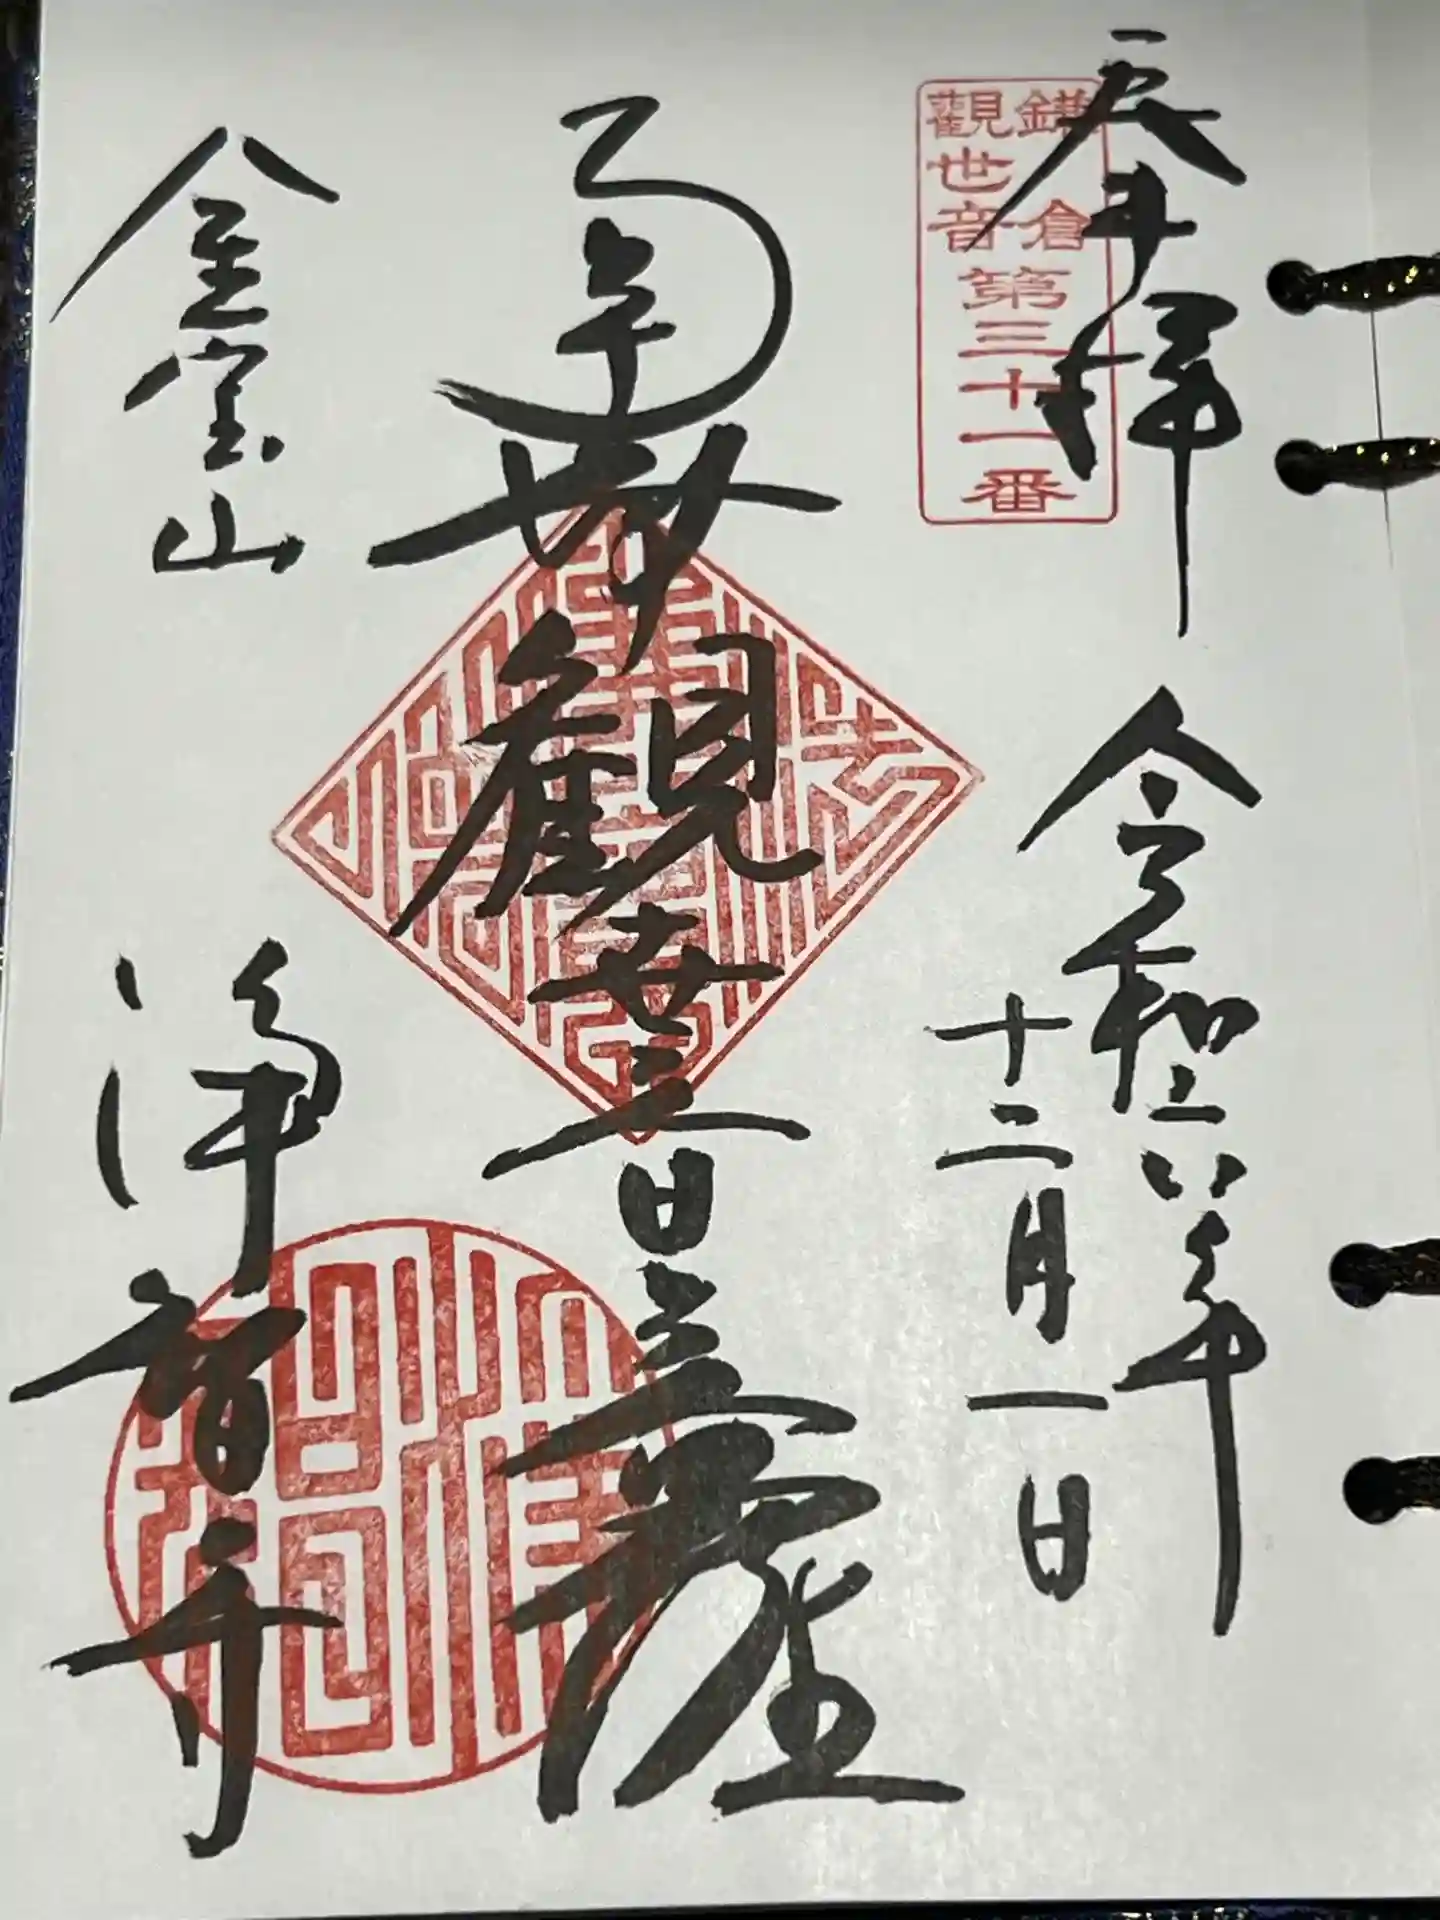 奉拝
鎌倉
觀世音
第三十一番
令和六年
十二月一日
南無觀世音菩薩
金宝山
浄智寺